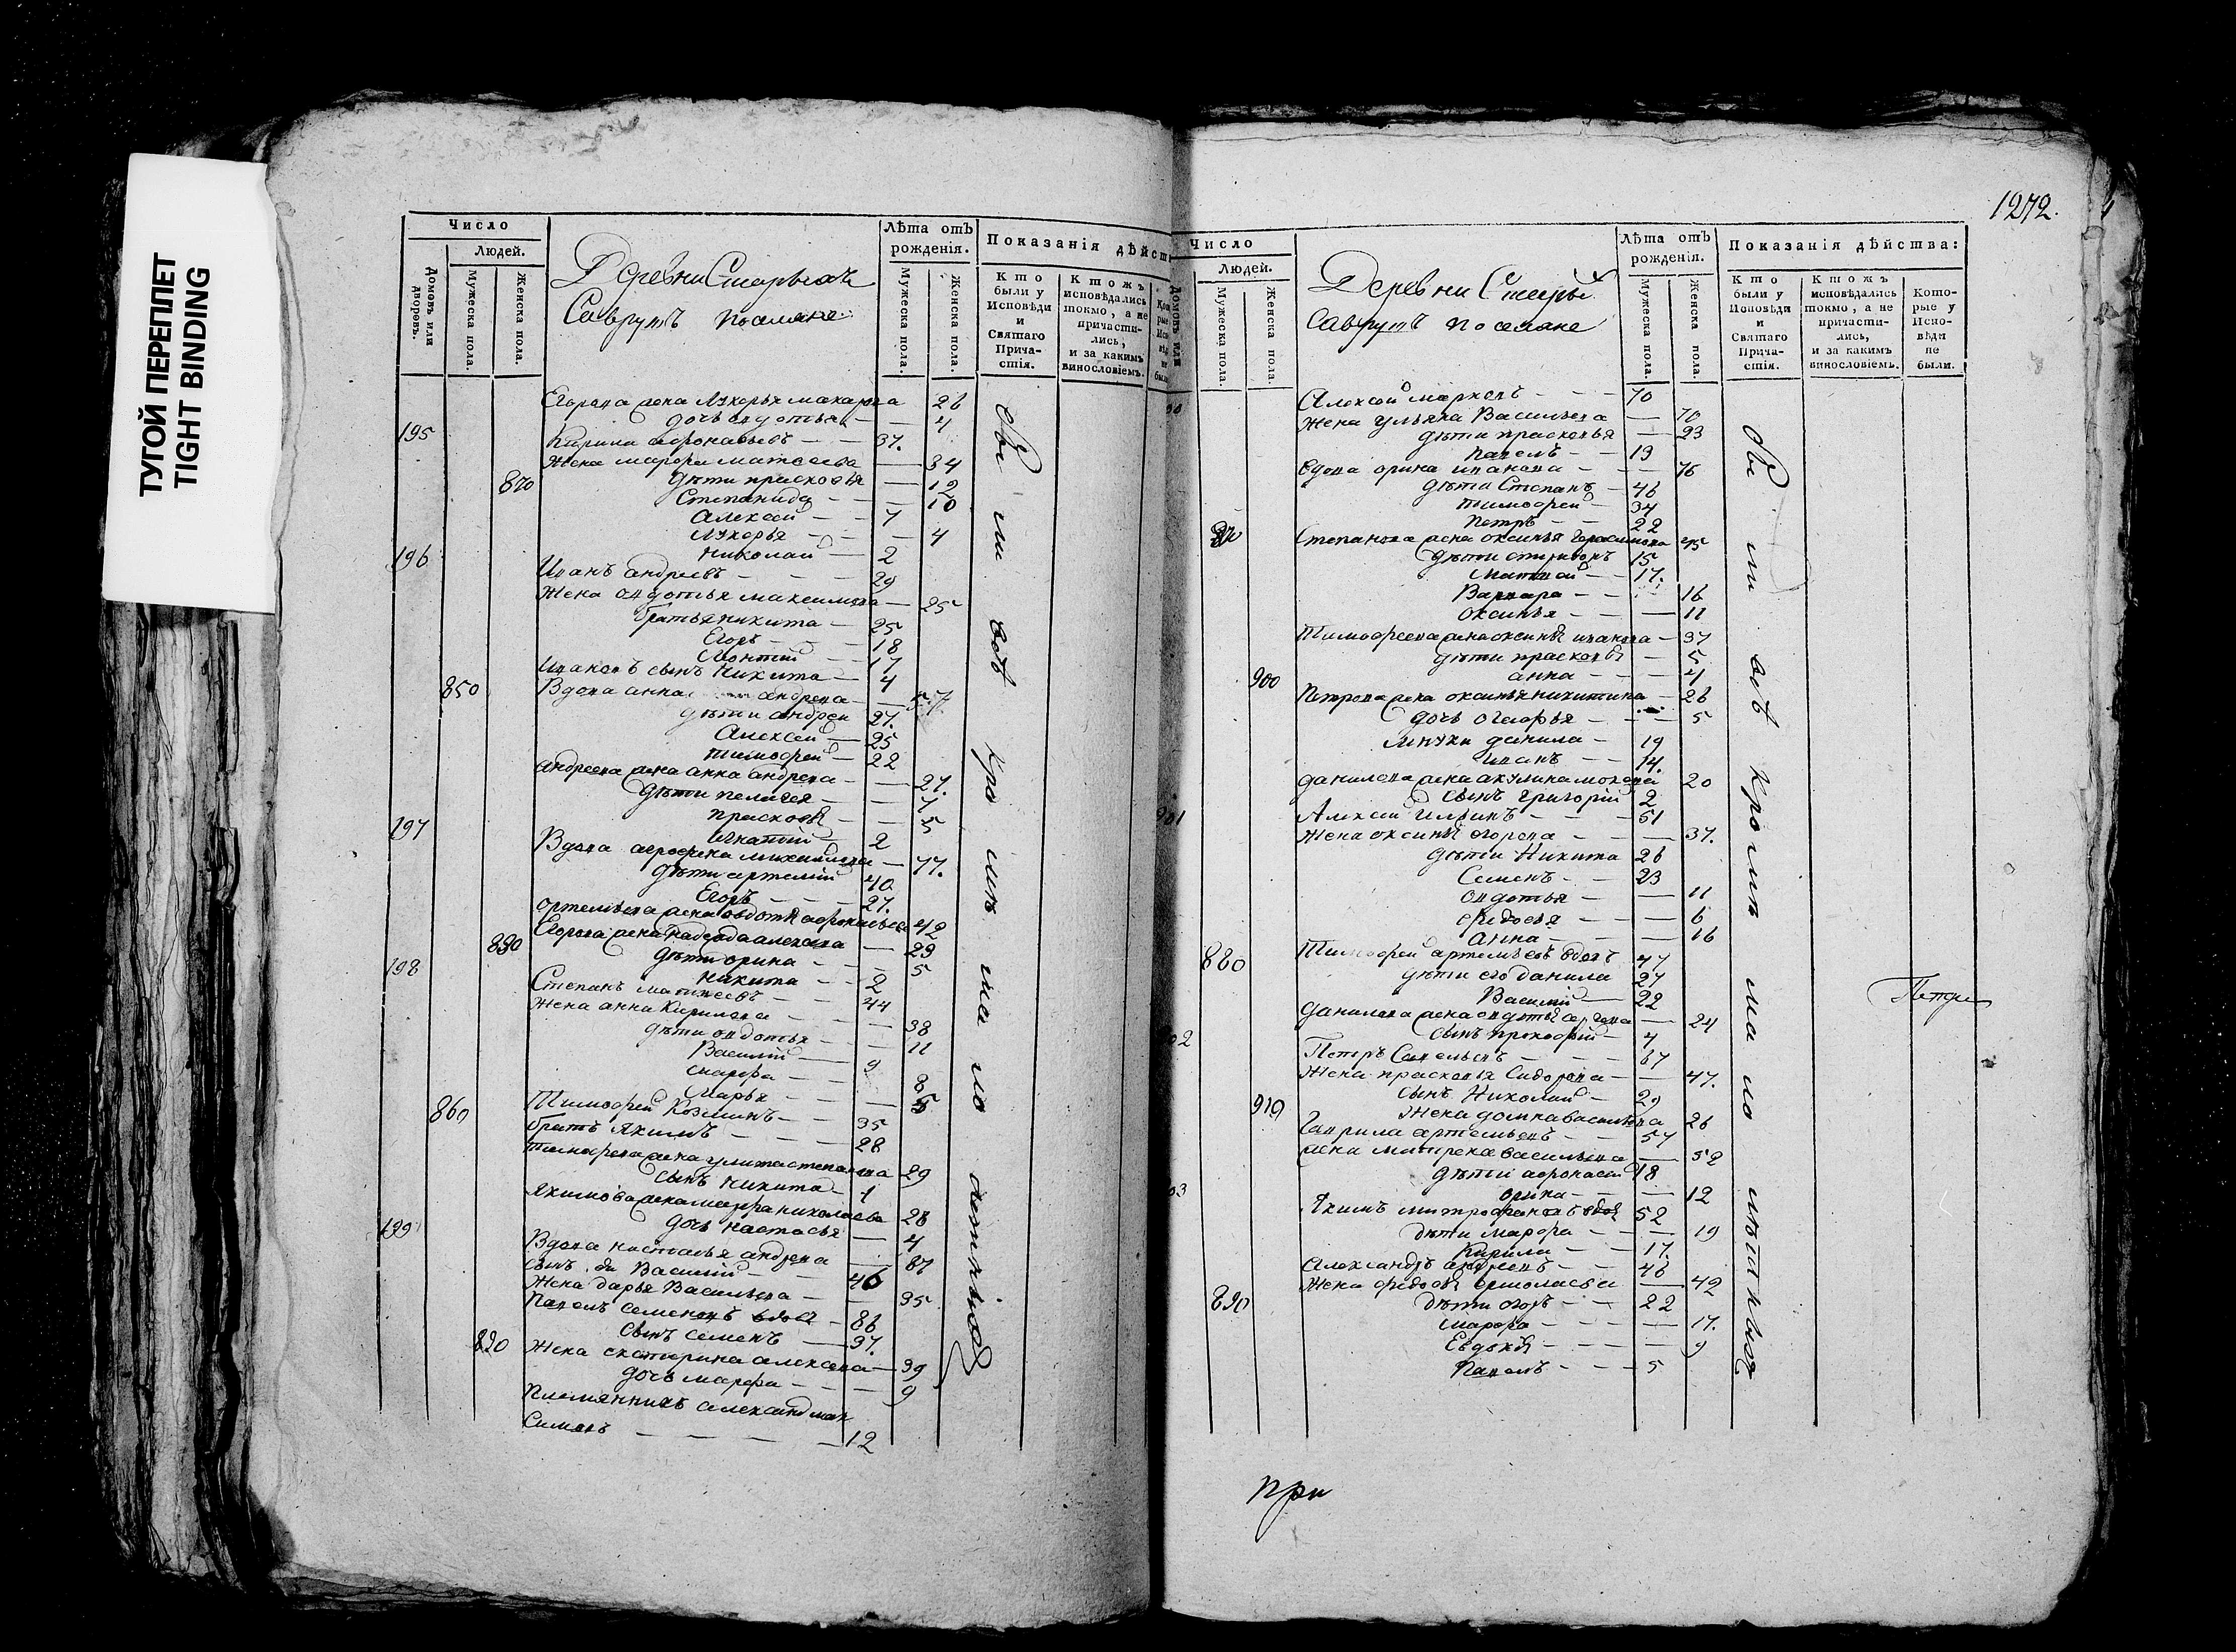 ТУГОЙ ПЕРЕПЛЕТ
TIGHT BINDING
Число
Людей.
Домовъ или дворовъ.
Мужеска пола.
Женска пола.
Деревни Старыхъ
Саврушъ поселяне
Лѣта отъ рожденія.
Мужеска пола.
Женска пола.
Показанія дѣйст
Кто были у Исповѣди и Святаго Причастія.
Ктожъ исповѣдались токмо, а не причастились, и за какимъ винословіемъ.
Егорова жена Лукерья макарова 26
дочь евдотья 4
195 Кирила афонасьевъ 37.
Жена марфа матвеева 34
870 дѣти прасковья 12
Степанида 10
Алексей 7
Лукерья 4
Николай 2
196 Иванъ андреевъ 29
Жена овдотья максимова 25
братья никита 25
Егоръ 18
Леонтий 17
Ивановъ сынъ Никита 4
850 Вдова анна андреева 57
дѣти андрей 27.
Алексей 25
тимофей 22
андреева жена анна андреева 27.
дѣти пелагея 7
прасковья 5
197 Игнатий 2
Вдова агрофена михайлова 77.
дѣти артемий 40
Егоръ 27.
артемьева жена овдотья афонасьева 42
880 Егорова жена Надежда алексеева 29
дѣти орина 5
198 никита 2
Степанъ матвеевъ 44
Жена анна Кирилова 38
дѣти овдотья 11
Василий 9
Марфа 8
Марья 5
860 Тимофей Козминъ 35
братъ Якимъ 28
тимофеева жена улита степанова 29
сынъ никита 1
Якимова жена марфа николаева 28
дочь настасья 4
199 Вдова настасья андреева 87
сынъ Василий 46
Жена дарья Васильева 35
Павелъ Семеновъ вдовъ 86
сынъ семенъ 37.
890 Жена екатерина алексеева 39
дочь марфа 9
Племянникъ александ
Симонъ 12
Оби ли всѣ кро мѣ ма ло лѣтныхъ
1272.
Число
Людей.
Мужеска пола.
Женска пола.
Деревни Стары
Саврушъ поселяне
Лѣта отъ рожденія.
Мужеска пола.
Женска пола.
Показанія дѣйства:
Кто были у Исповѣди и Святаго Причастія.
Ктожъ исповѣдались токмо, а не причастились, и за какимъ винословіемъ.
Которые у Исповѣди не были.
Алексей марковъ 70
Жена ульяна Васильева 70
дѣти прасковья 23
павелъ 19
вдова орина иванова 76
дѣти Степанъ 46
тимофей 34
петръ 22
Степанова жена оксинья герасимова 45
дѣти спиридонъ 15
Матвей 17.
Варвара 16
оксинья 11
Тимофеева жена оксинья иванова 37
дѣти прасковья 5
900 анна 4
Петрова жена оксинья никитина 26
дочь 5
внуки данила 19
Иванъ 14.
данилова жена акулина 20
сынъ григорий 2
Алексей Ильинъ 51
Жена оксинья егорова 37.
дѣти Никита 26
Семенъ 23
овдотья 11
федосья 6
анна 16
880 Тимофей артемьевъ вдовъ 47
дѣти его данила 27
Василий 22
данилова жена овдотья сергеева 24
сынъ прокофий 4
Петръ Савельевъ 67
Жена прасковья Сидорова 47.
сынъ Николай 29
910 Жена домна васильева 26
Гаврила артемьевъ 57
жена матрена васильева 52
дѣти афонасий 18
орина 12
Якимъ митрофановъ вдовъ 52
дѣти марфа 19
Кирила 17.
Александръ андреевъ 46
Жена федосья ермолаева 42
890 дѣти егоръ 22
марфа 17.
Евдокия 9
Павелъ 5
Оби ли всѣ кромѣ ма ло лѣтныхъ
при